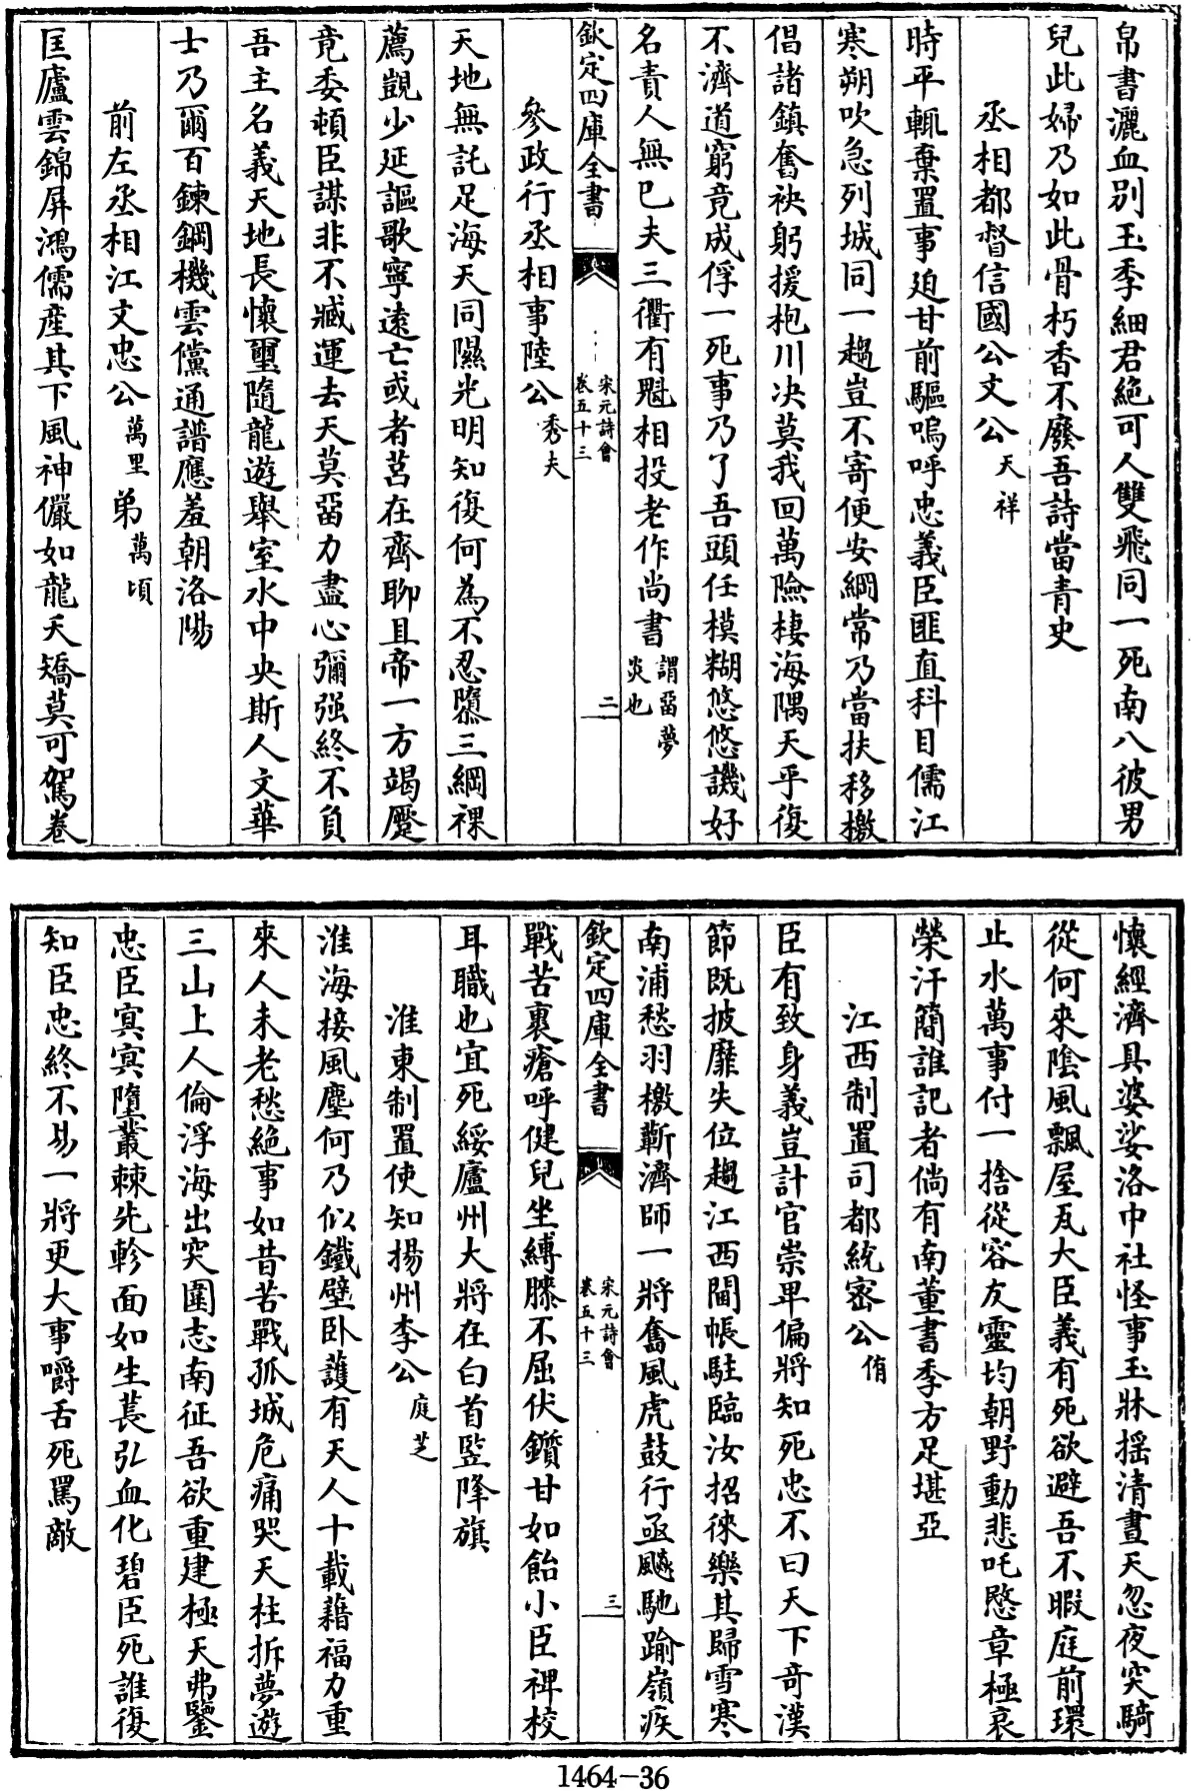 帛書灑血別玉季細君絶可人雙飛同一死南八彼男
兒此婦乃如此骨朽香不廢吾詩當青史
丞相都督信國公文公天祥
時平輒棄置事廹甘前驅嗚呼忠義臣匪直科目儒江
寒朔吹急列城同一趨豈不寄便安綱常乃當扶移檄
倡諸鎮奮袂躬援枹川决莫我回萬險棲海隅天乎復
不濟道窮竟成俘一死事乃了吾頭任模糊悠悠譏好
名責人無已夫三衢有魁相投老作尚書謂畱夢炎也
欽定四庫全書
宋元詩會
卷五十三
二
參政行丞相事陸公秀夫
天地無託足海天同隰光明知復何為不忍隳三綱裸
薦覬少延謳歌寧遠亡或者莒在齊聊且帝一方竭蹷
竟委頓臣謀非不臧運去天莫畱力盡心彌强終不負
吾主名義天地長懷璽隨龍遊舉室水中央斯人文華
士乃爾百鍊鋼機雲儻通譜應羞朝洛陽
前左丞相江文忠公萬里弟萬頃
匡廬雲錦屏鴻儒産其下風神儼如龍夭矯莫可駕卷
懷經濟具婆娑洛中社怪事玉牀揺清晝天忽夜突騎
從何來陰風飄屋瓦大臣義有死欲避吾不暇庭前環
止水萬事付一捨從容友靈均朝野動悲吒愍章極哀
榮汗簡誰記者倘有南董書季方足堪亞
江西制置司都統密公佾
臣有致身義豈計官崇卑偏將知死忠不曰天下竒漢
節既披靡失位趨江西閫帳駐臨汝招徠樂其歸雪寒
南浦愁羽檄蘄濟師一將奮風虎鼓行亟飈馳踰嶺疾
欽定四庫全書
宋元詩會
卷五十三
三
戰苦裹瘡呼健兒坐縛膝不屈伏鑕甘如飴小臣裨校
耳職也宜死綏廬州大將在白首豎降旗
淮東制置使知揚州李公庭芝
淮海接風塵何乃似鐵壁卧護有天人十載藉福力重
來人未老愁絶事如昔苦戰孤城危痛哭天柱拆夢遊
三山上人倫浮海出突圍志南征吾欲重建極天弗鑒
忠臣寞寞墮叢棘先軫面如生萇弘血化碧臣死誰復
知臣忠終不易一將更大事嚼舌死罵敵
1464-36